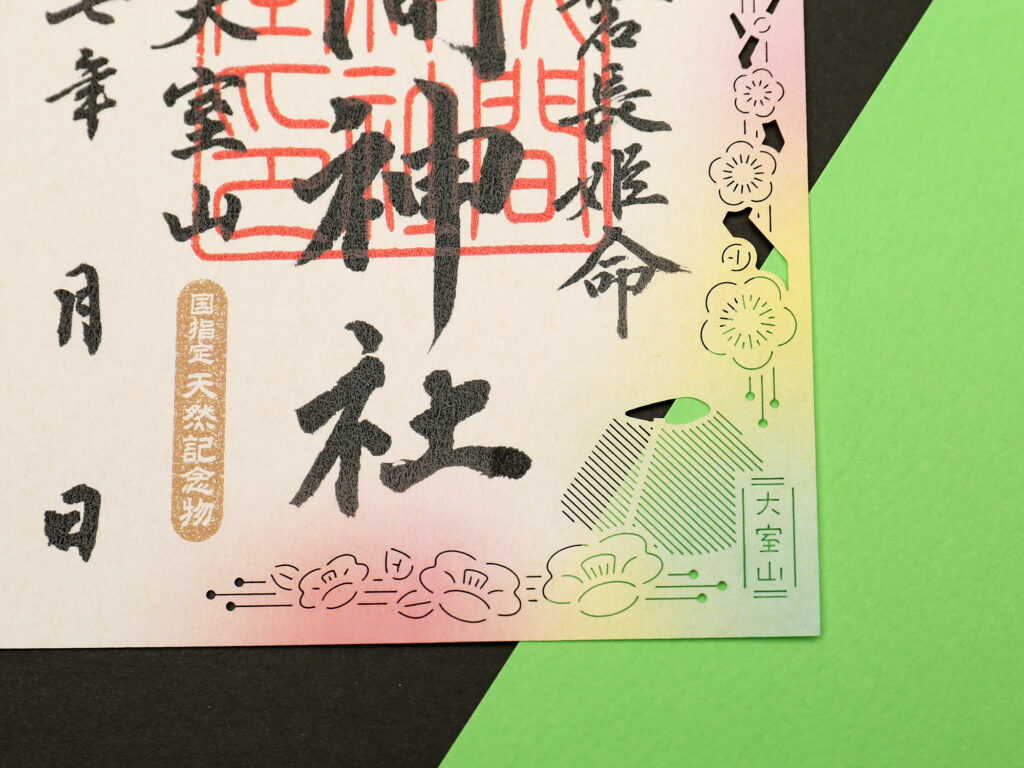 磐長姫命
間神社
大室山
国指定天然記念物
七年
月
日
大室山